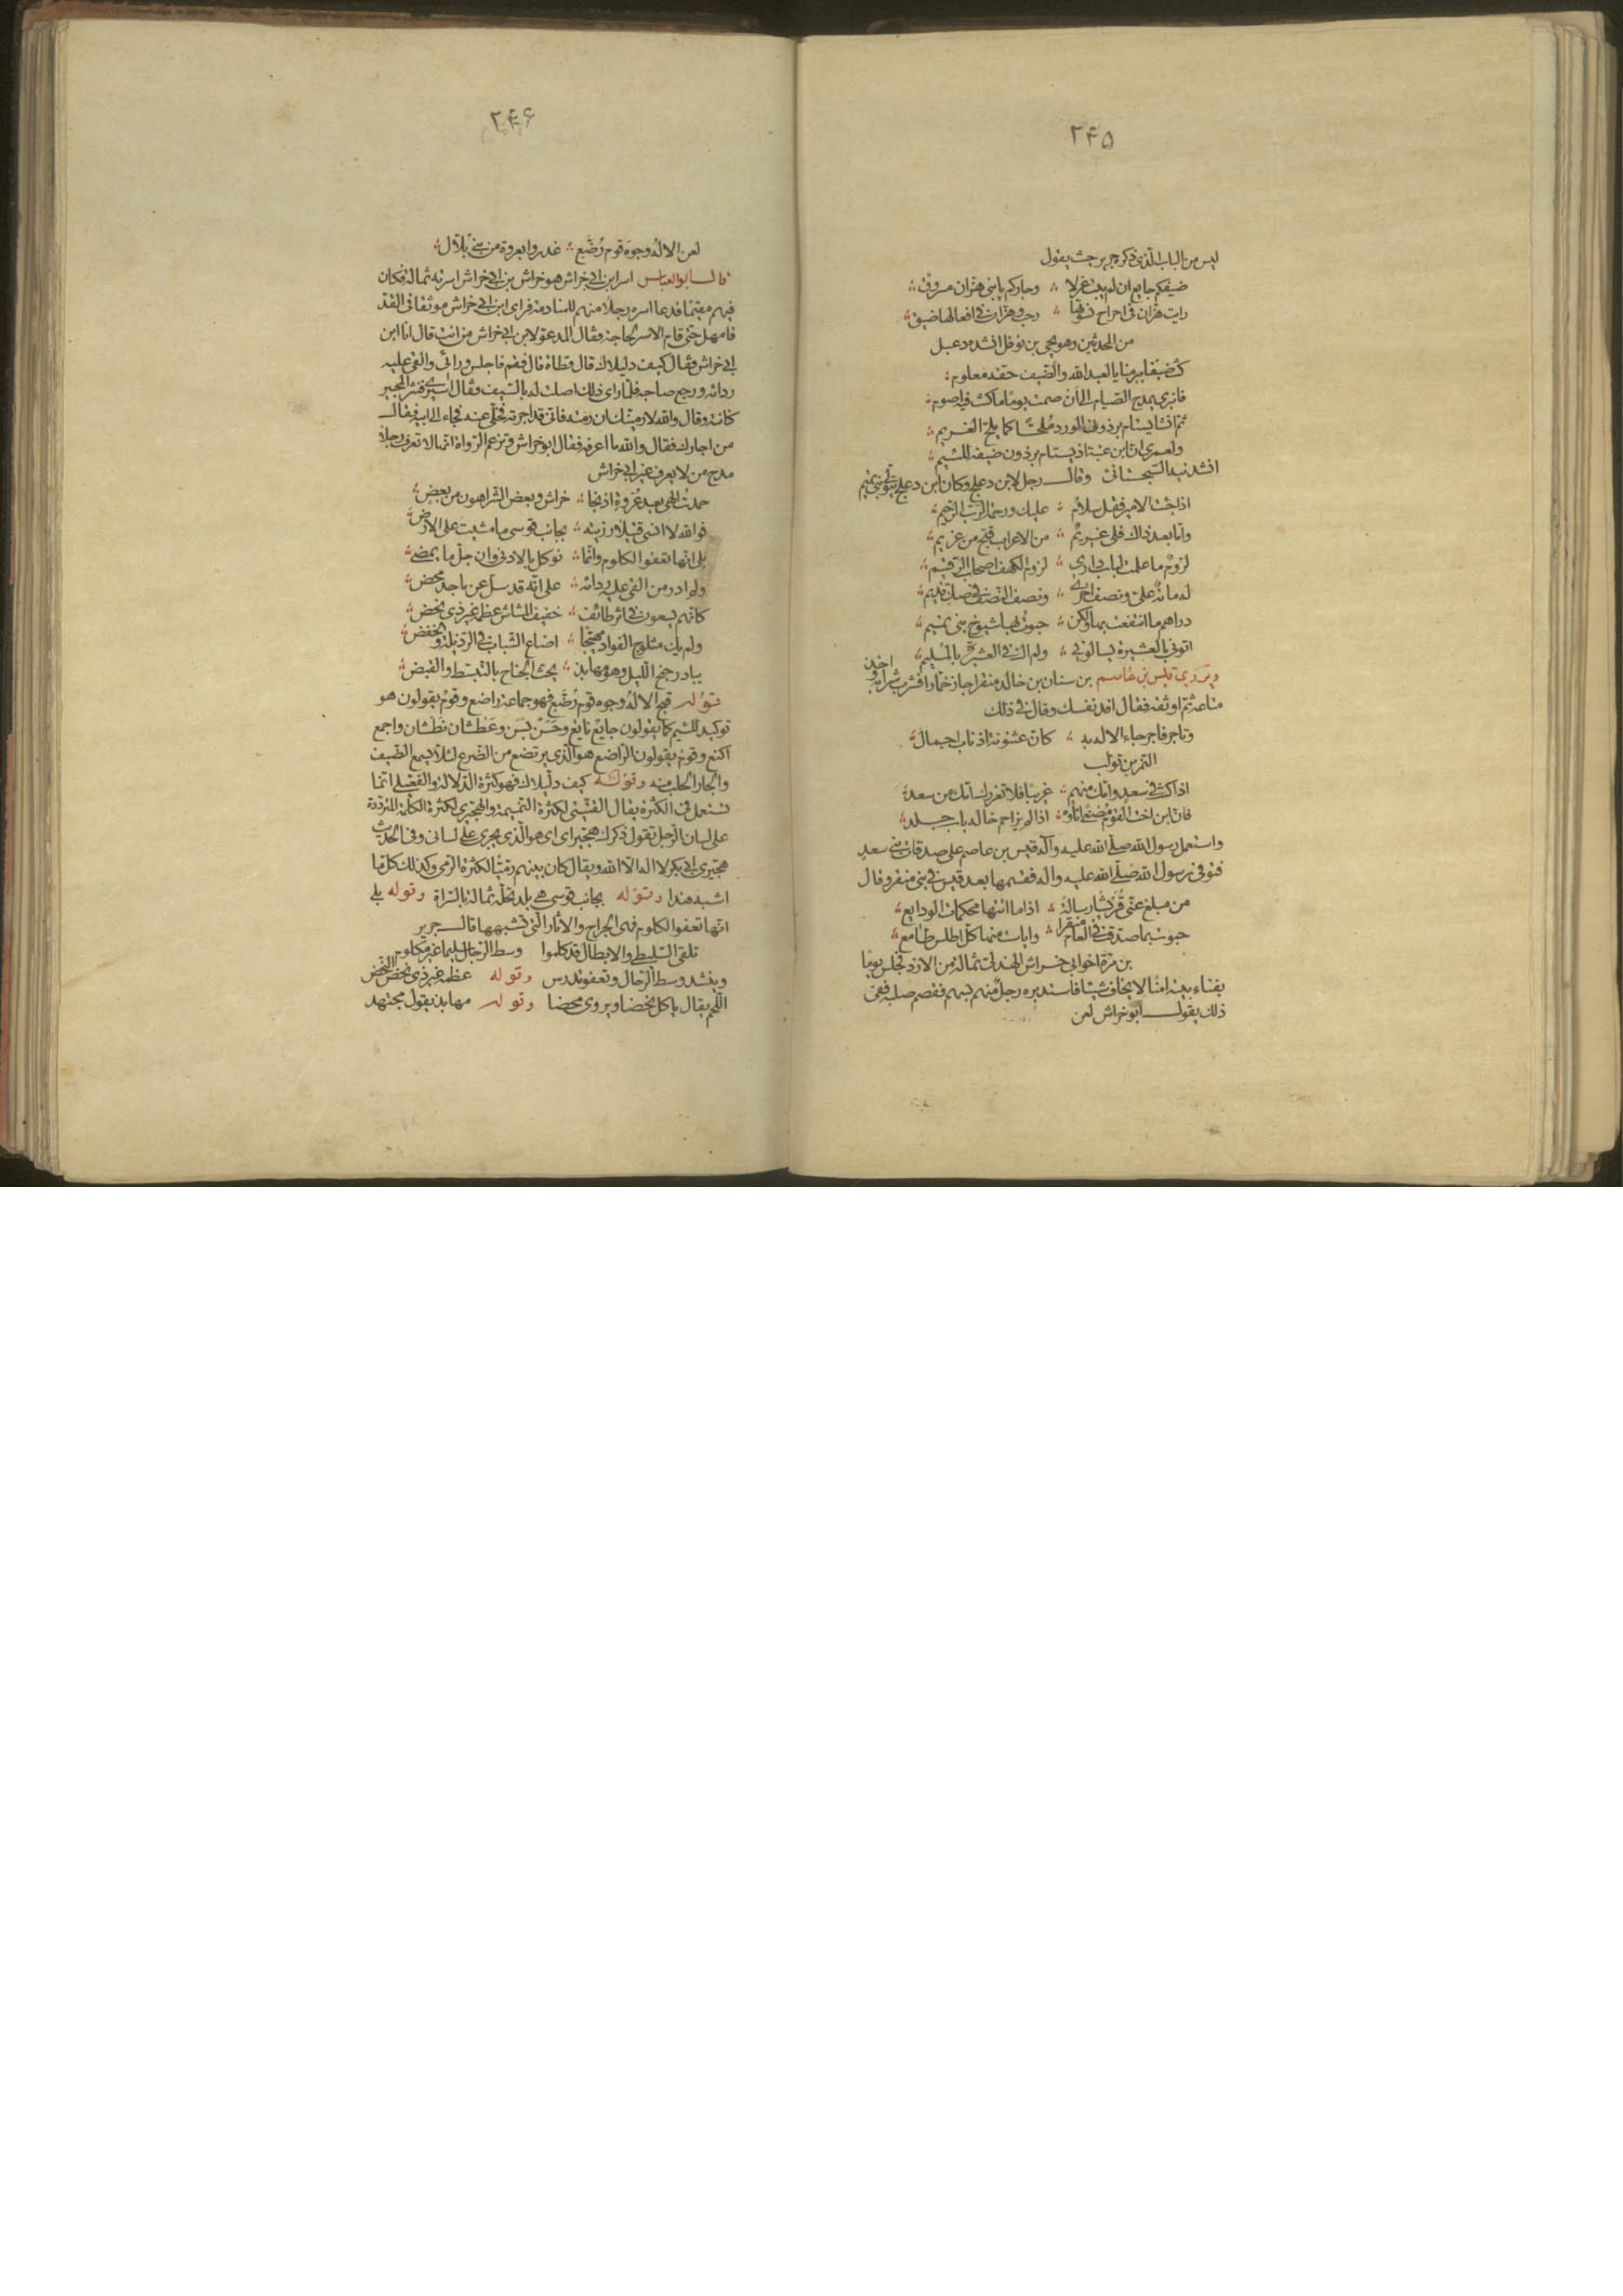 ۲۴۵
ليس من الباب الذى ذكره جرير حيث يقول
ضيفكم جايع ان لم يبت غزلا ؞ وجاركم يا بنى هزان مسروق ؞
رايت هزان فى احراح نسوتها ؞ رحب وهزان فى افعالها ضيق ؞
من المحدثين وهو يحيى بن نوفل انشده دعبل
كنت ضيفا ببرمنايا لعبد الله والضيف حقه معلوم ؞
فانبرى يمدح الصيام الى ان صمت يوما ما كنت فيه اصوم ؞
ثم انشا يستام برذونى الورد ملحّا كما يلح الغريم ؞
ولعمرى ان ابن عبتة اذ يستام برذون ضيفه للئيم ؞
انشدنيه السجستانى وقال رجل لابن دعلج وكان ابن دعلج يتولى بنى تميم
اذا جئت الامير فقل سلام ؞ عليك ورحمة الرب الرحيم ؞
وامّا بعد ذاك فلى غريم ؞ من الاعراب قبح من غريم ؞
لزوم ما علمت لباب دارى ؞ لزوم الكهف اصحاب الرقيم ؞
له مائة علىّ ونصف اخرى ؞ ونصف النصف فى صك قديم ؞
دراهم ما انتفعت بها ولكن ؞ حبوت بها شيوخ بنى تميم ؞
اتونى بالعشيرة يسالونى ؞ ولم اك فى العشيرة بالمليم ؞
ويروى قيس بن عاصم بن سنان بن خالد منقر اجاز خمارا فشرب شرابه واخذ
متاعه ثم اوثقه فقال افد نفسك وقال فى ذلك
وتاجر فاجر جاء الاله به ؞ كان عثنونه اذناب اجمال ؞
النمر بن تولب
اذا كنت فى سعد وامّك منهم ؞ غريبا فلا تغررك امّك من سعد ؞
فان ابن اخت القوم مصغى اناؤه ؞ اذا لم يزاحم خاله باب جلد ؞
واستعمل رسول الله صلى الله عليه وآله قيس بن عاصم على صدقات بنى سعد
فتوفى رسول الله صلى الله عليه واله فقسمها بعد قيس فى بنى منقر وقال
من مبلغ عنّى قريشا رسالة ؞ اذا ما اتتها محكمات الودايع ؞
حبوت بما صدقت فى العام منقرا ؞ وايات منها كل اطلس طامع ؞
بن مرة اخو ابى خراش الهذلى ثمالة من الازد فجلس يوما
بفناء بيته امنا لا يخاف شيئا فاستدبره رجل منهم بسهم فقصم صلبه ففى
ذلك يقول ابو خراش لعن
۲۴۶
لعن الاله وجوه قوم رضّع ؞ غدروا بعروة من بنى بلال ؞
قال ابو العباس اسر ابن ابى خراش هو خراش بن ابى خراش اسرته ثمالة فكان
فيهم مقيما فدعا اسره رجلا منهم للمنادمة فراى ابن ابى خراش موثقا فى القد
فامهل حتى قام الاسر لحاجة وقال المدعو لابن ابى خراش من انت قال انا ابن
ابى خراش فقال كيف دليلاك قال قطاة قال فقم فاجلس ورائى والقى عليه
ردائه ورجع صاحبه فلما راى ذلك اصلت له بالسيف وقال اسيرى فنثر المجير
كنانته وقال والله لارمينك ان رمته فانى قد اجرته فخلى عنه فجاء الى ابيه فقال
من اجارك فقال والله ما اعرفه فقال ابو خراش وتزعم الرواة انها لا تعرف رجلا
مدح من لا يعرف غير ابى خراش
حمدت الهى بعد عروة اذ نجا ؞ خراش وبعض الشر اهون من بعض ؞
فوالله لا انسى قتيلا رزيته ؞ بجانب قوسى ما مشيت على الارض ؞
بلى انها تعفوا الكلوم وانما ؞ نوكل بالادنى وان جل ما يمضى ؞
ولم ادر من القى عليه ردائه ؞ على انه قد سلّ عن ماجد محض ؞
كانهم يسعون فى اثر طائف ؞ خفيف المشاش عظمه غير ذى نحض ؞
ولم يك مثلوج الفواد مهبّجا ؞ اضاع الشباب فى الربيلة والخفض ؞
يبادر جنح الليل وهو مهابذ ؞ يحث الجناح بالتبسط والقبض ؞
قوله قبح الاله وجوه قوم رضّع فهو جماعة راضع وقوم يقولون هو
توكيد للئيم كما يقولون جايع نايع وحسن بسن وعطشان نطشان واجمع
اكتع وقوم يقولون الراضع هو الذى يرتضع من الضرع لئلا يسمع الضيف
والجار الحلب منه وقوله كيف دليلاك فهو كثرة الدلالة والفعيلى انما
تستعمل فى الكثرة يقال القتيتى لكثرة النميمة والهجيرى لكثرة الكلمة المترددة
على لسان الرجل تقول ذكرك هجيراى اى هو الذى يجرى على لسانى وفى الحديث
هجيرى ابى بكر لا اله الا الله ويقال كان بينهم رمّيّا لكثرة الرمى وكذلك كل ما
اشبه هذا وقوله بجانب قوسى هى بلد تحله ثمالة بالسراة وقوله بلى
انها تعفو الكلوم فهى الجراح والاثار التى تشبهها قال جرير
تلقى السليطى والابطال قد كلموا وسط الرجال سليما غير مكلوم
وينشد وسط الرحال وتعفو تدرس وقوله عظمه غير ذى نحض النحض
اللحم يقال ياكل نحضا ويروى محضا وقوله مهابذ يقول مجتهد